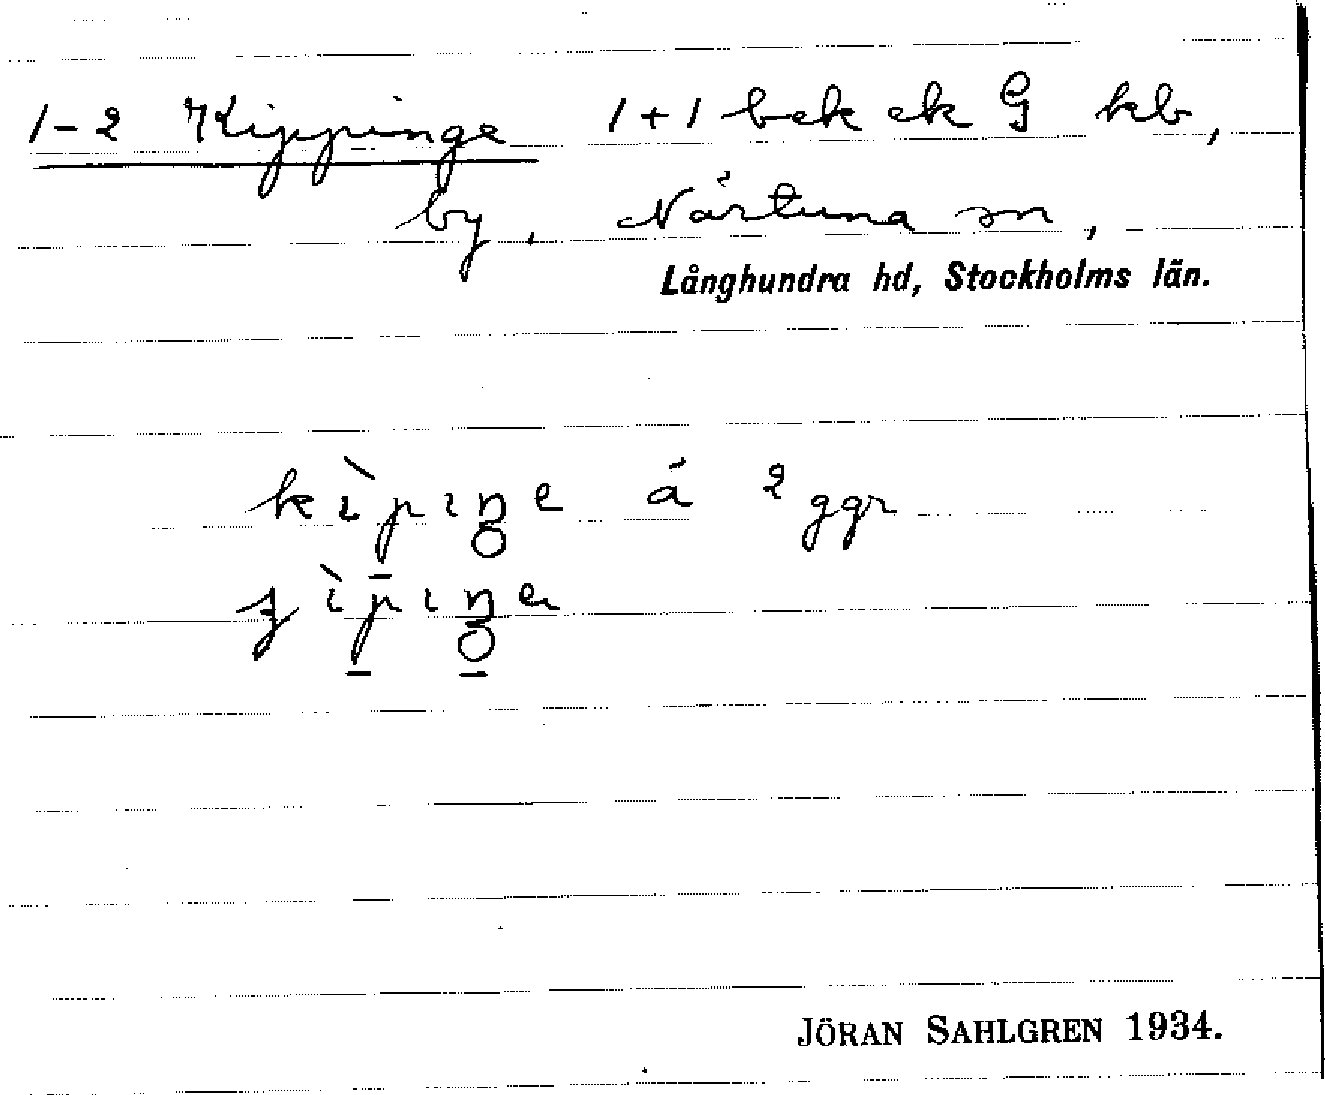 1-2 Kippinge 1+1 bek ek G kb,
by, Närtuna sn,
Långhundra hd, Stockholms län.
kìpıŋe á 2 ggr
ʝìpıŋe
JÖRAN SAHLGREN 1934.